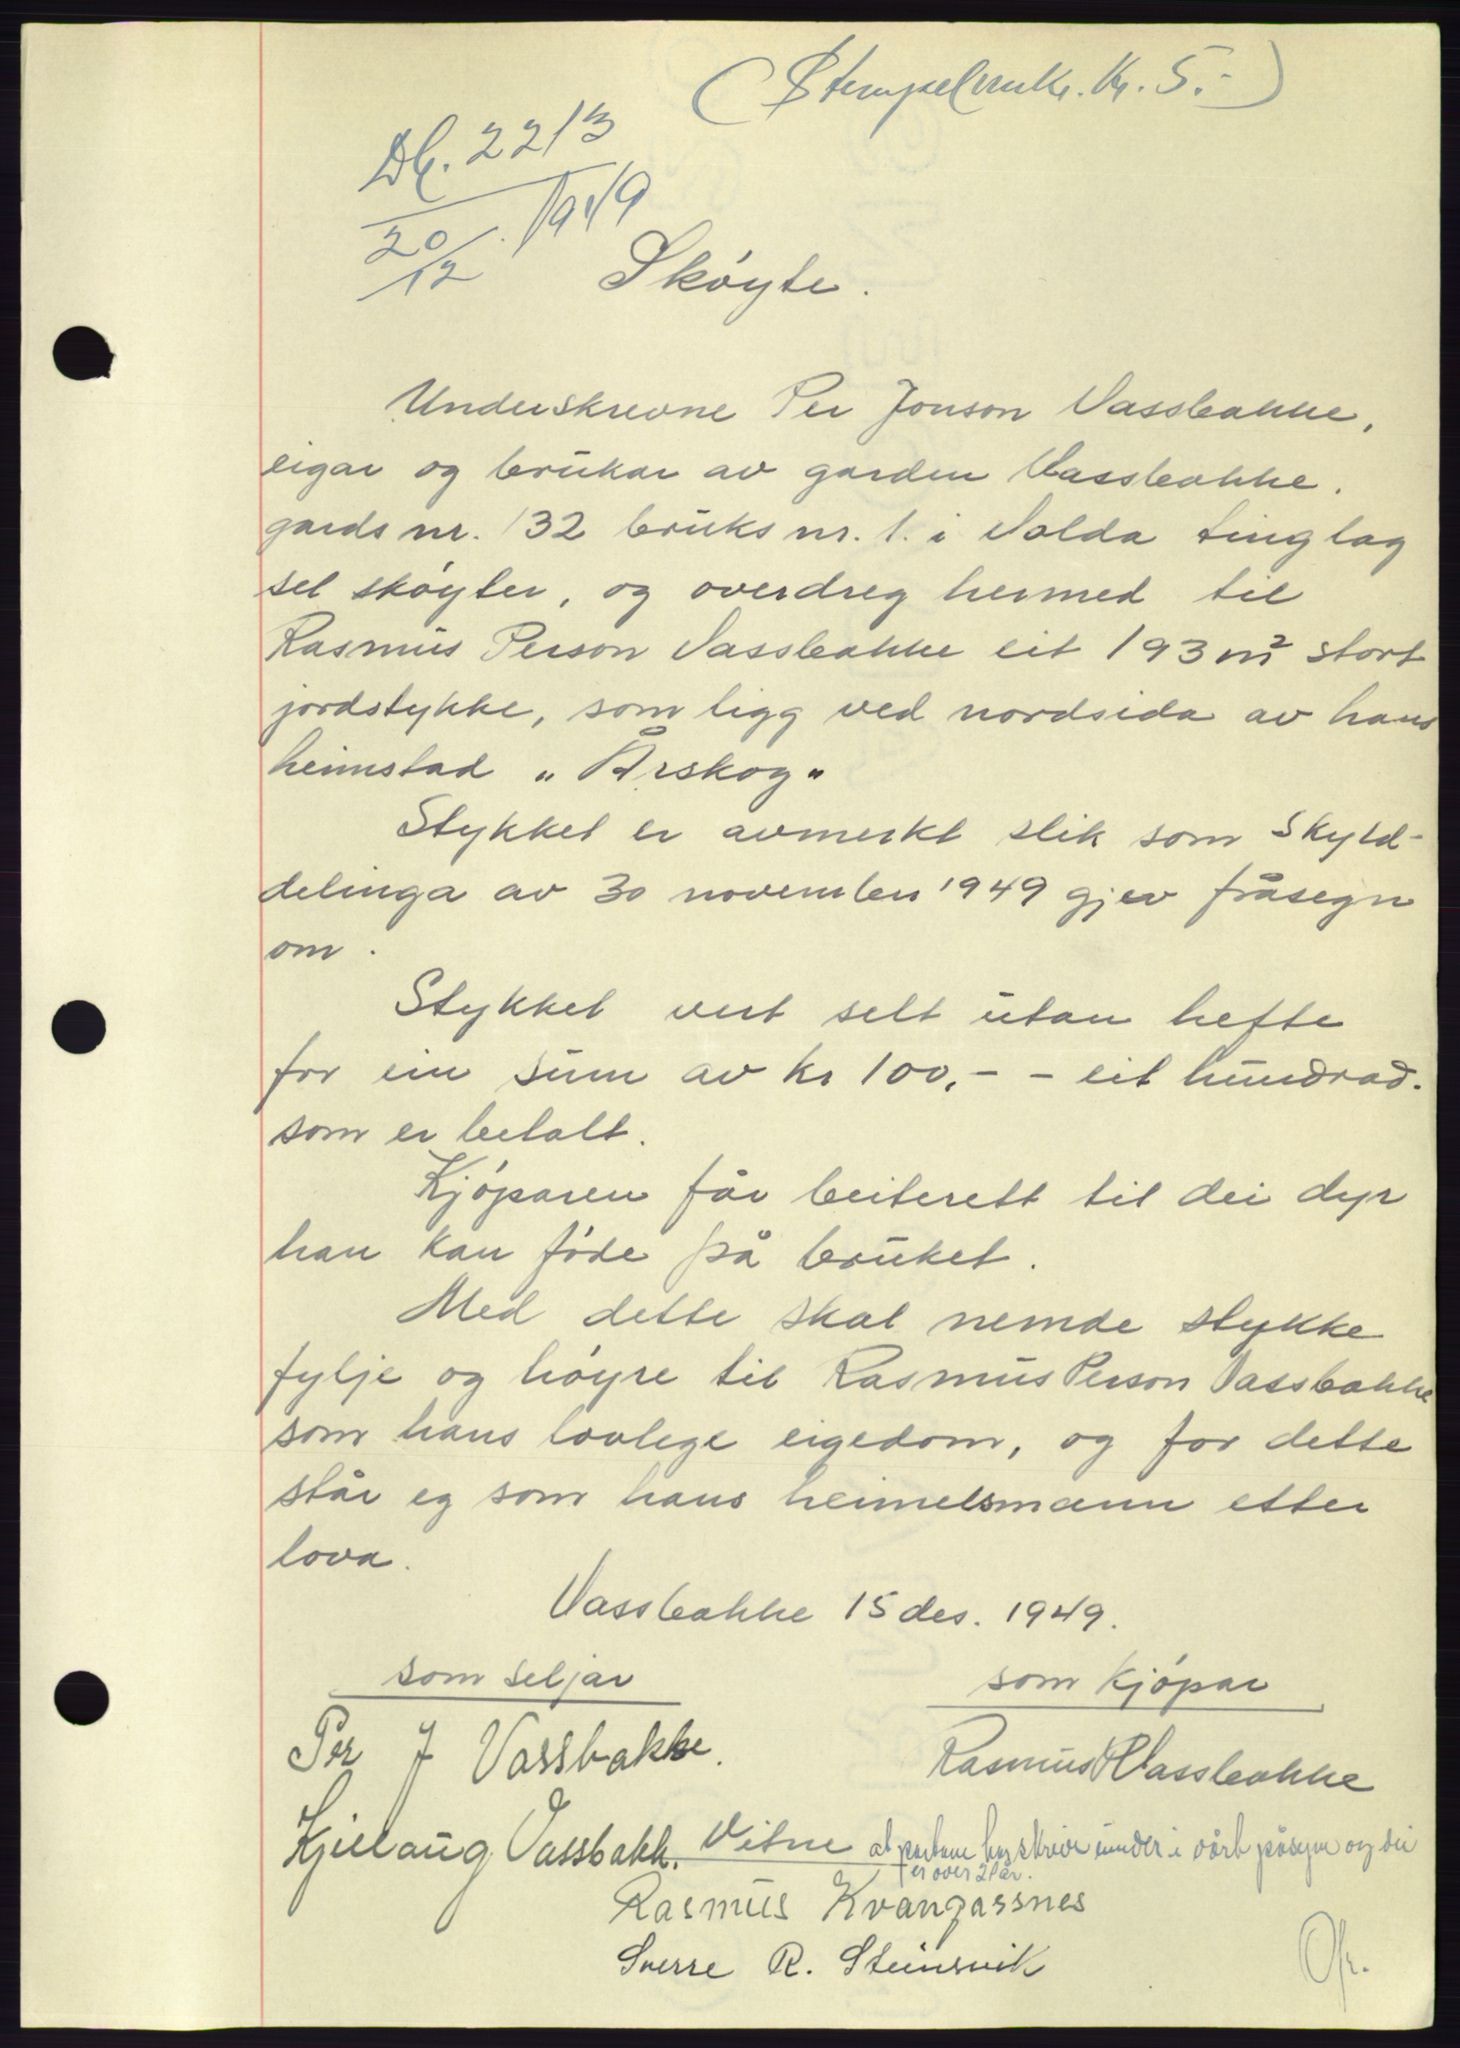 (Stempelmk. Kr. 5.-)
Db. 2213
20/12. 1949
Skøyte.
Underskrevne Per Jonson Vassbakke,
eigar og brukar av garden Vassbakke.
gards nr. 132 bruks nr. 1. i Volda tinglag
sel skøyter, og overdreg hermed til
Rasmus Person Vassbakke eit 193 m² stort
jordstykke, som ligg ved nordsida av hans
heimstad "Årskog"
Stykket er avmerkt slik som Skyld-
delinga av 30 november 1949 gjev fråsegn
om.
Stykket vert selt utan hefte
for ein sum av kr 100,- - eit hundrad.
som er betalt.
Kjøparen får beiterett til dei dyr
han kan føde på bruket.
Med dette skal nemde stykke
fylje og høyre til Rasmus Person Vassbakke
som hans lovlege eigedom, og for dette
står eg som hans heimelsmann etter
lova.
Vassbakke 15 des. 1949.
som seljar som kjøpar
Per J Vassbakke. Rasmus P Vassbakke
Kjellaug Vassbakk. Vitne at partane har skrive under i vårt påsyn og dei
er over 21 år.
Rasmus Kvangarsnes
Sverre R. Steinsvik